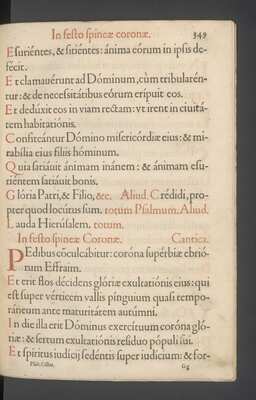 In festo spineæ coronæ. 349
Esuriéntes, & sitiéntes: ánima eórum in ipsis de-
fécit.
Et clamauérunt ad Dóminum, cùm tribularén-
tur: & de necessitátibus eórum erípuit eos.
Et dedúxit eos in viam rectam: vt irent in ciuitá-
tem habitatiónis.
Confiteántur Dómino misericórdiæ eius: & mi-
rabília eius fíliis hóminum.
Quia satiáuit ánimam inánem: & ánimam esu-
riéntem satiáuit bonis.
Glória Patri, & Filio, &c. Aliud. Crédidi, pro-
pter quod locútus sum. totum Psalmum. Aliud.
Lauda Hierúsalem. totum.
In festo spineæ Coronæ. Cantica.
PEdibus cōculcábitur: coróna supérbiæ ebrió-
rum Effraim.
Et erit flos décidens glóriæ exultatiónis eius: qui
est super vérticem vallis pínguium quasi tempo-
ráneum ante maturitátem autúmni.
In die illa erit Dóminus exercítuum coróna gló-
riæ: & sertum exultatiónis resíduo pópuli sui.
Et spíritus iudícij sedentis super iudícium: & for-
Psalt. Cister. Gg